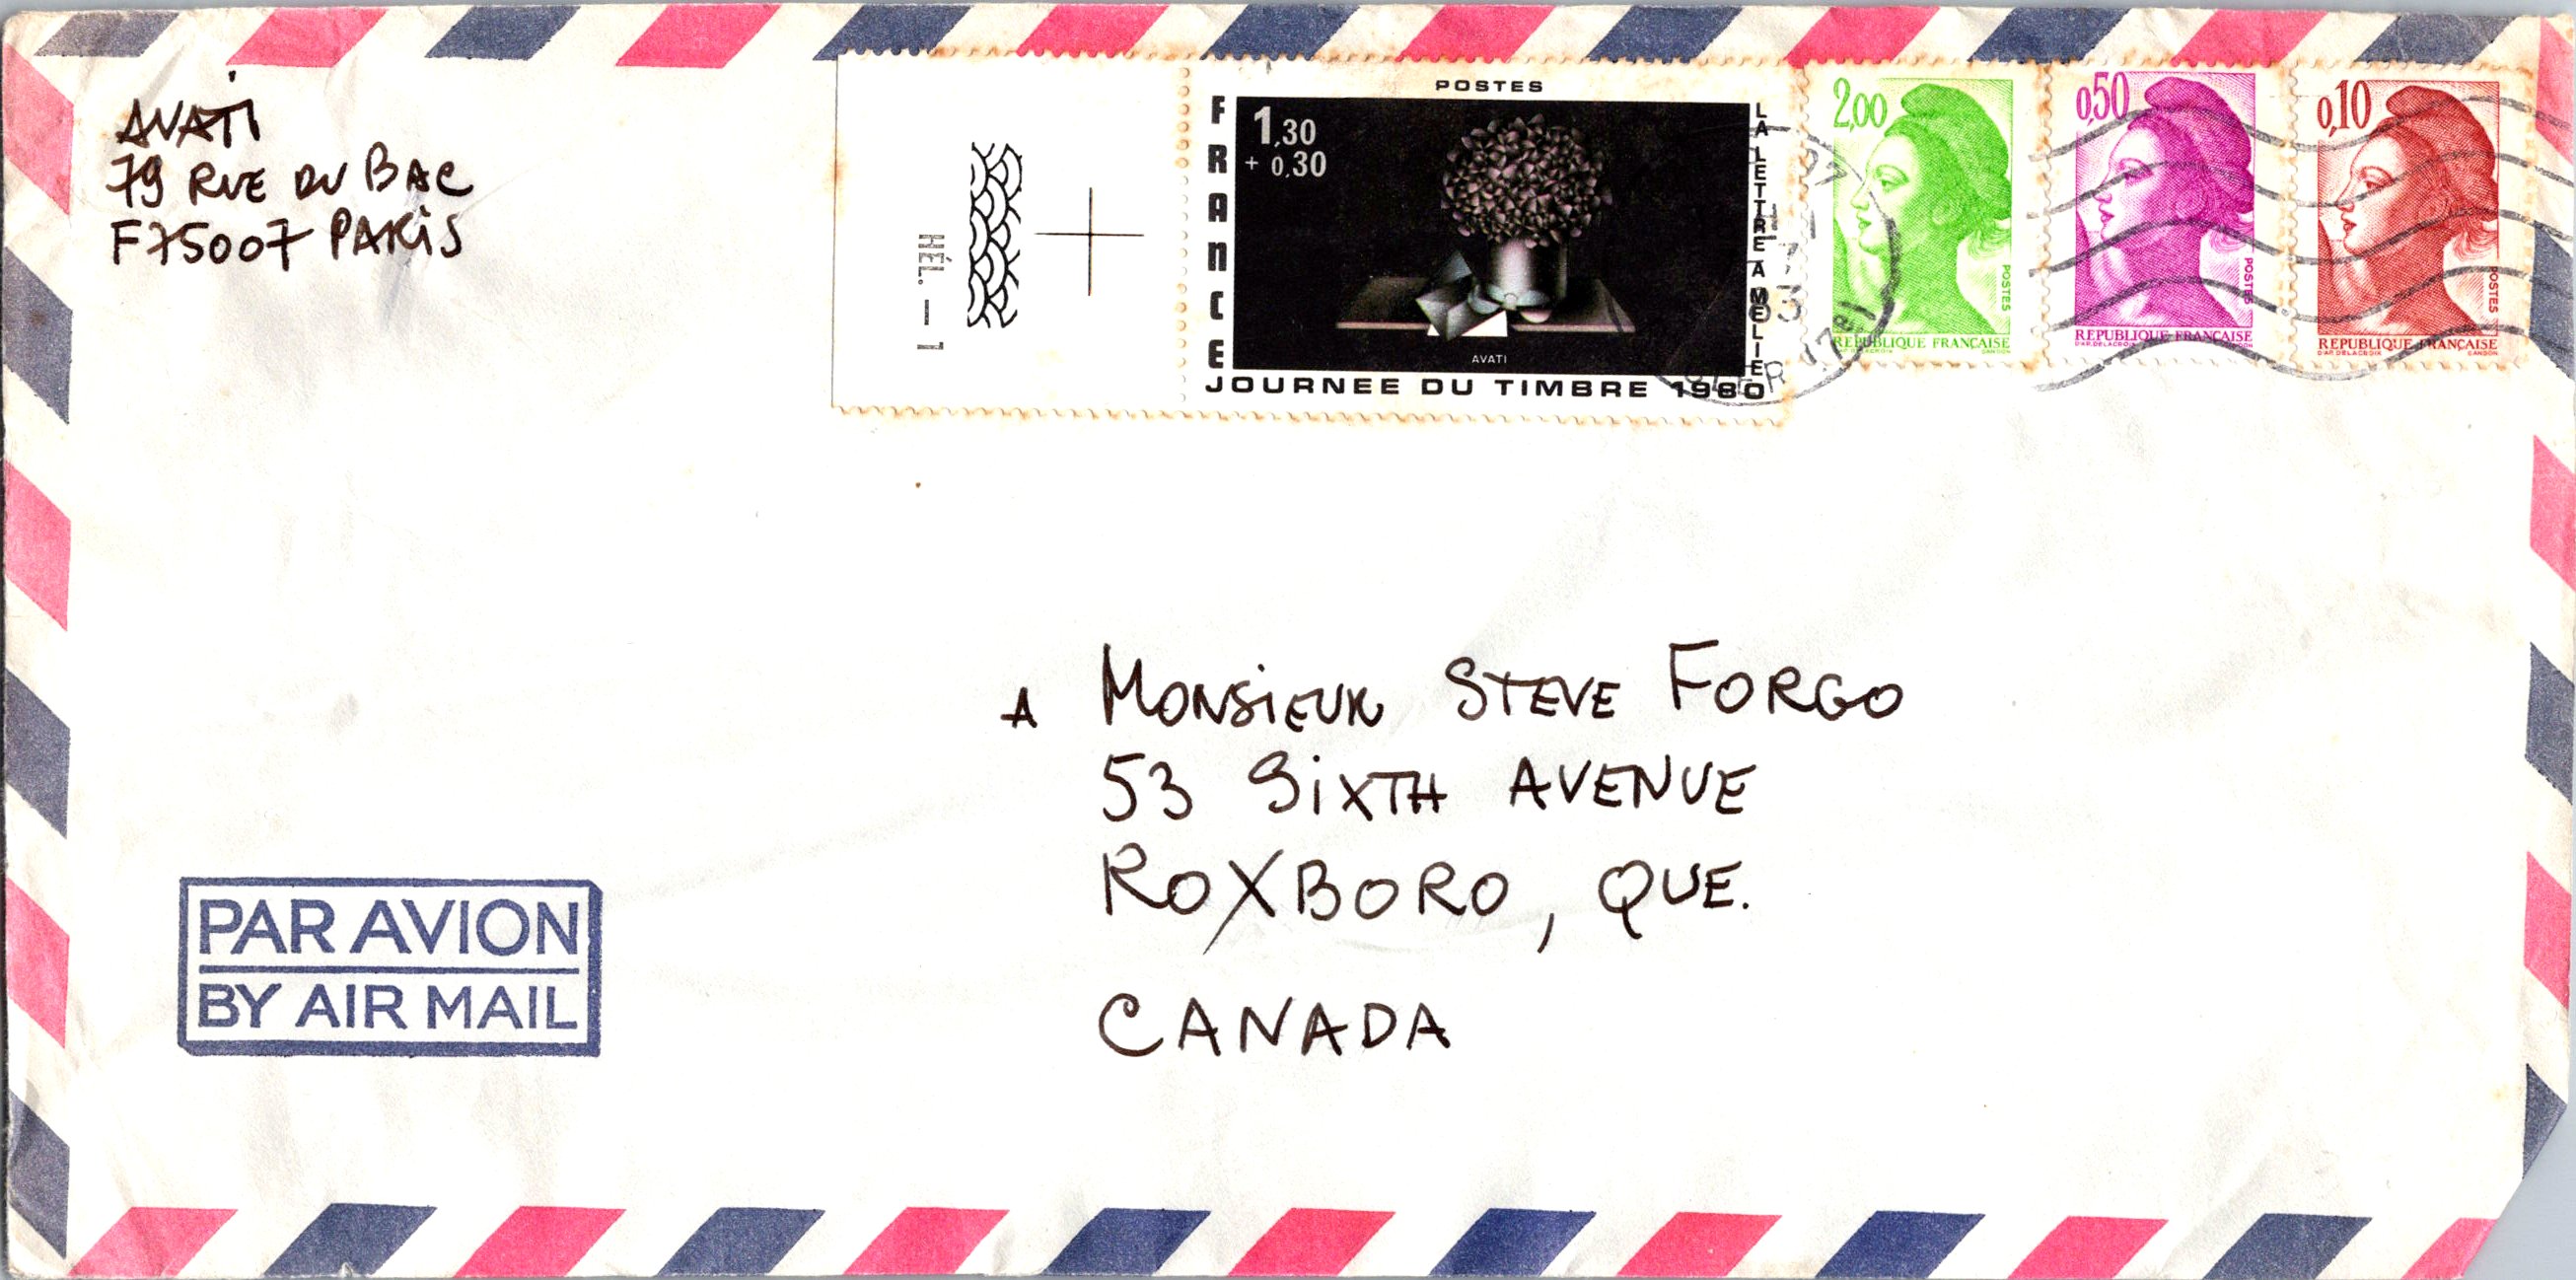 AVATI
79 RUE DU BAC
F75007 PARIS
HÉL. – 1
POSTES
FRANCE
1,30
+ 0,30
LA LETTRE A MELIE
AVATI
JOURNEE DU TIMBRE 1980
2,00
POSTES
REPUBLIQUE FRANÇAISE
D'AP. DELACROIX GANDON
0,50
POSTES
REPUBLIQUE FRANÇAISE
D'AP. DELACROIX GANDON
0,10
POSTES
REPUBLIQUE FRANÇAISE
D'AP. DELACROIX GANDON
A MONSIEUR STEVE FORGO
53 SIXTH AVENUE
ROXBORO, QUE.
CANADA
PAR AVION
BY AIR MAIL